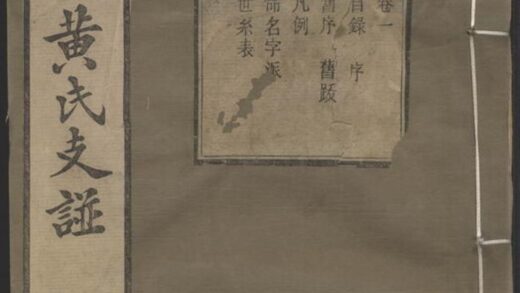 卷一
目錄 序
舊序 舊跋
凡例
命名字派
世系表
黃氏支諩